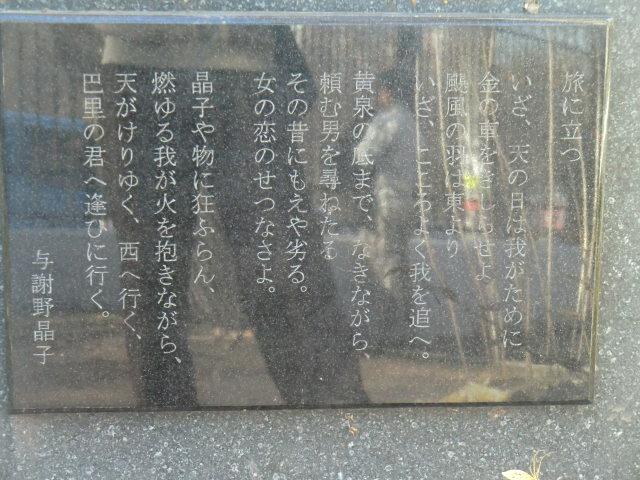 旅に立つ
いざ、天の日は我がために
金の車をきしらせよ
颶風の羽は東より
いざ、こころよく我を追へ。
黄泉の底まで、なきながら、
頼む男を尋ねたる
その昔にもえや劣る。
女の恋のせつなさよ。
晶子や物に狂ふらん、
燃ゆる我が火を抱きながら、
天がけりゆく、西へ行く、
巴里の君へ逢ひに行く。
与謝野晶子